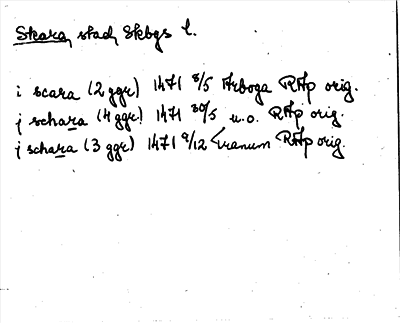 Skara, stad, Skbgs l.
i scara (2 ggr) 1471 8/5 Arboga RAp orig.
j schara (4 ggr) 1471 30/5 u.o. RAp orig.
j schara (3 ggr) 1471 9/12 Uranum RAp orig.